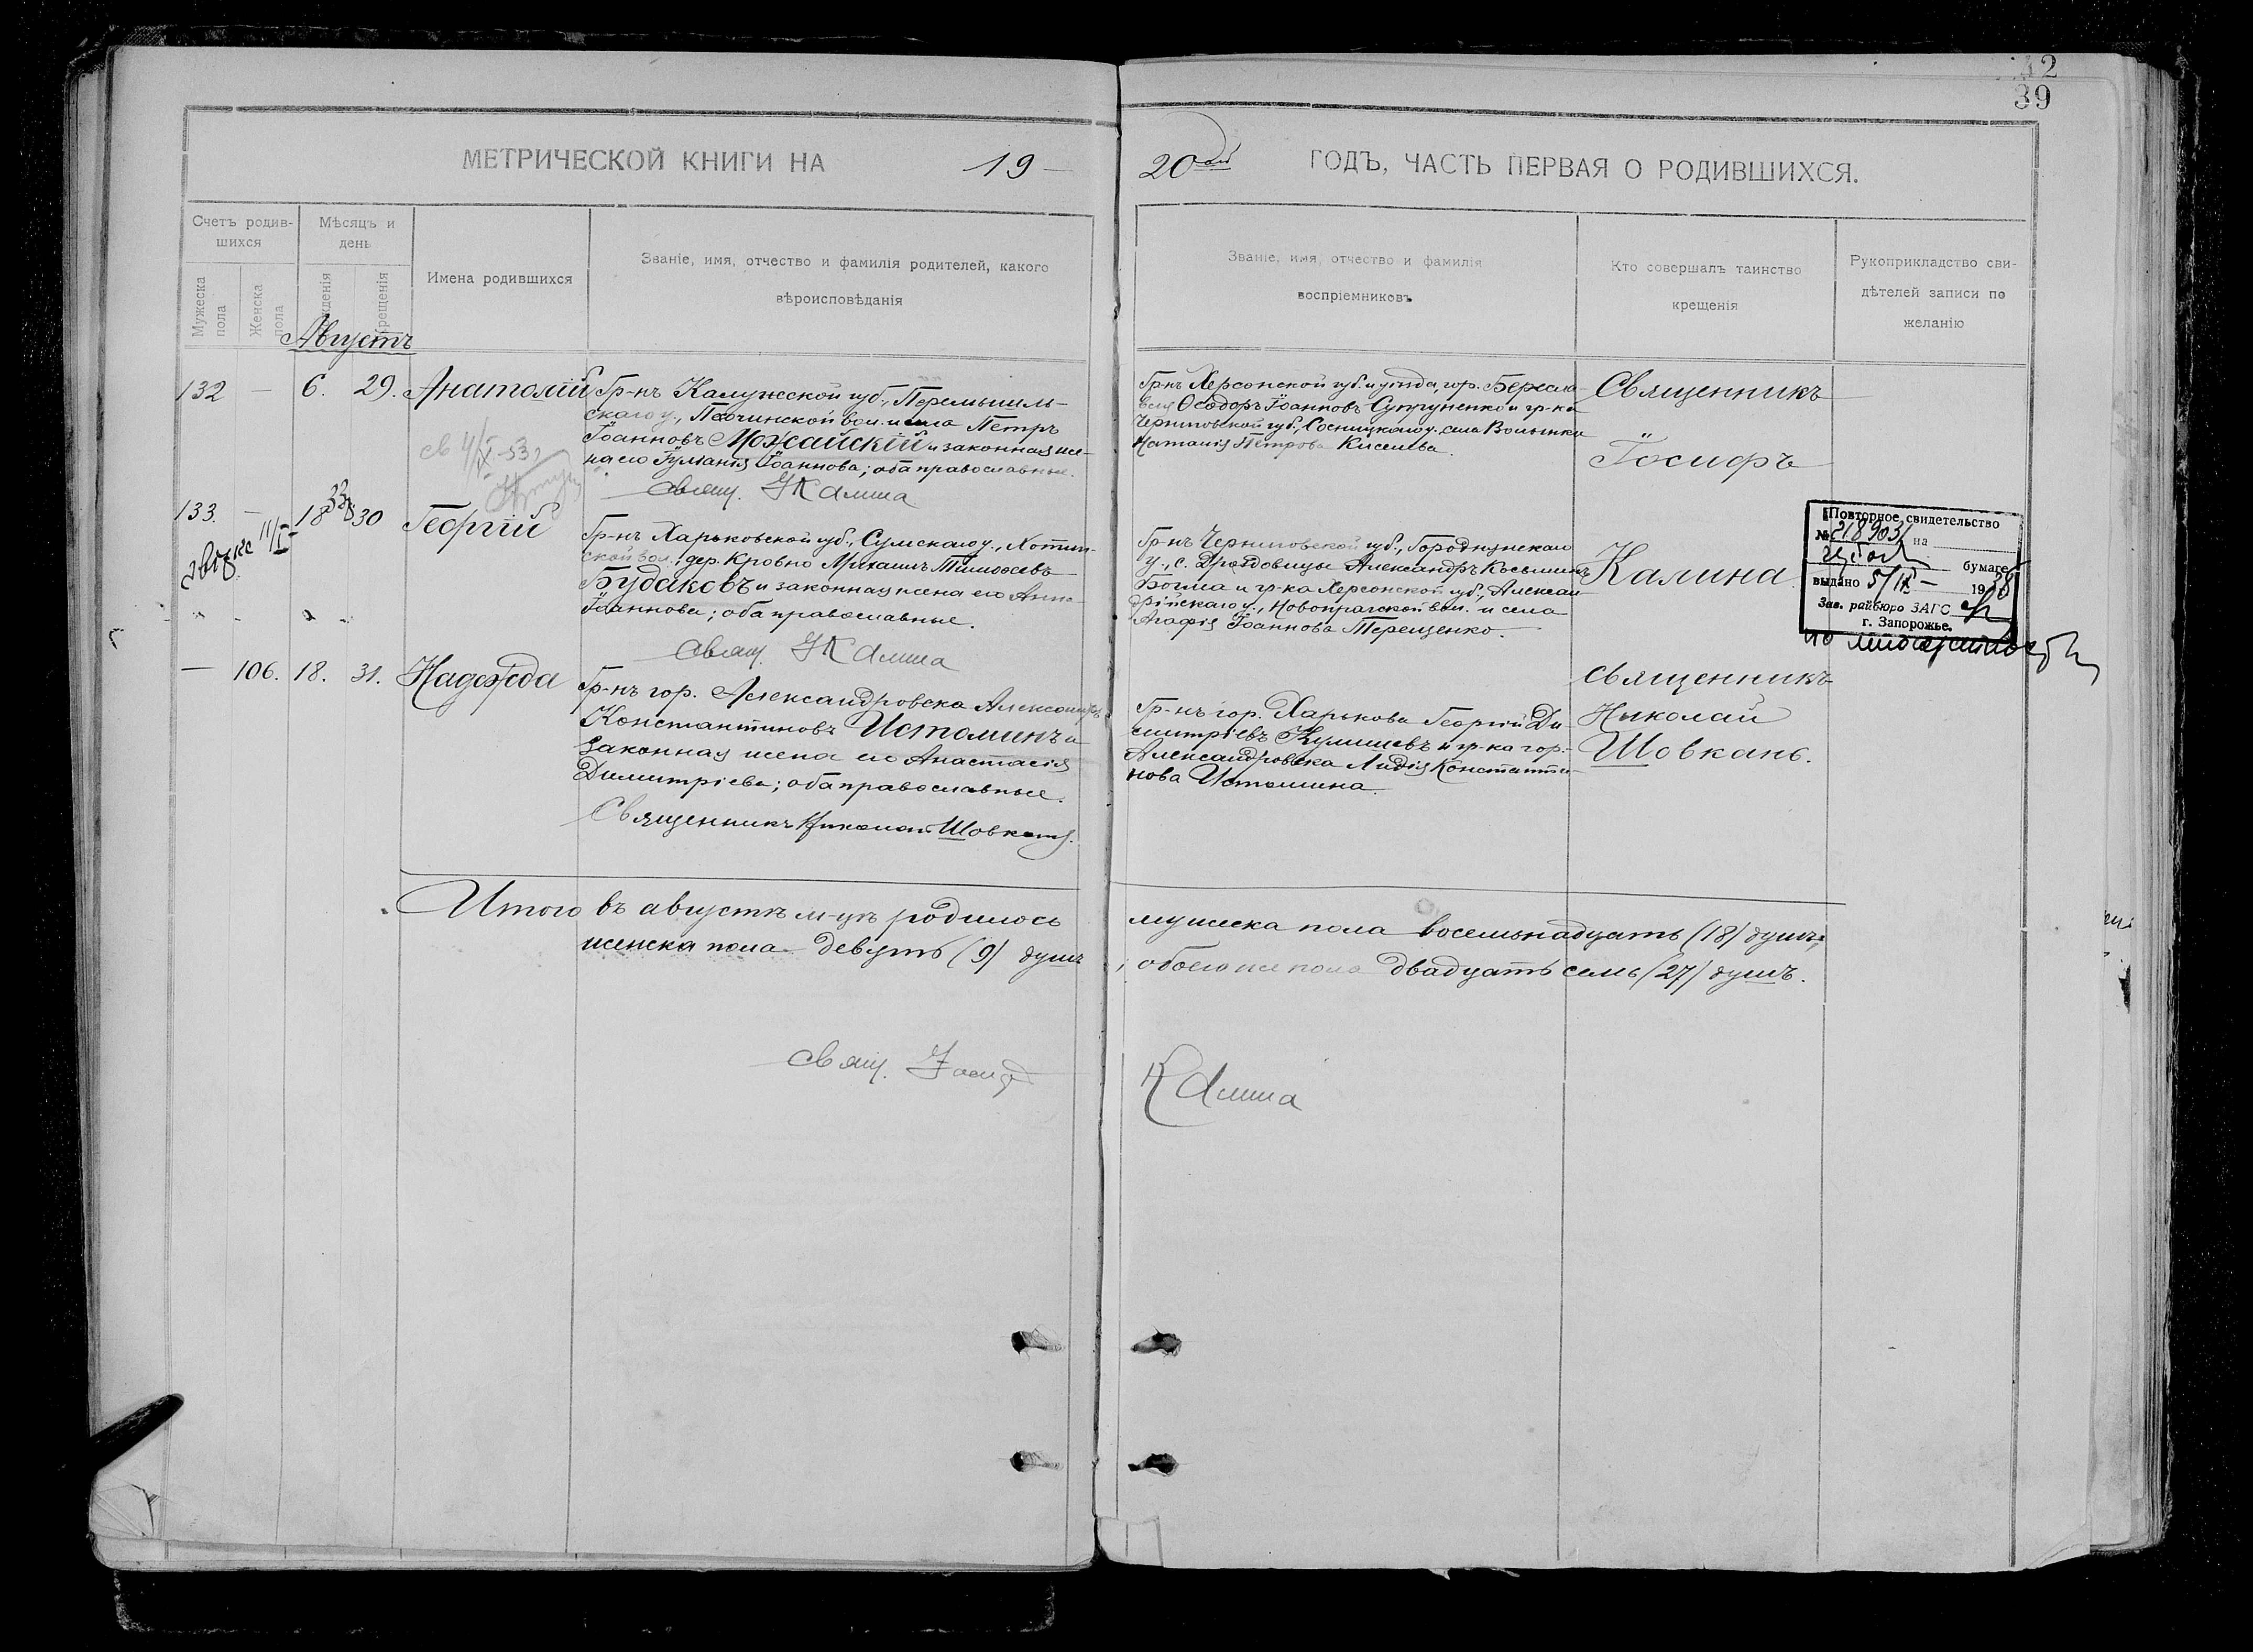 32
39
МЕТРИЧЕСКОЙ КНИГИ НА 19
20ый ГОДЪ, ЧАСТЬ ПЕРВАЯ О РОДИВШИХСЯ.
Счетъ родив-
шихся
Мужеска пола
Женска пола
Мѣсяцъ и
день
рожденія
крещенія
Имена родившихся
Званіе, имя, отчество и фамилія родителей, какого
вѣроисповѣданія
Званіе, имя, отчество и фамилія
воспріемниковъ
Кто совершалъ таинство
крещенія
Рукоприкладство сви-
дѣтелей записи по
желанію
Августъ
132 — 6. 29. Анатолій
Гр-нъ Калужской губ., Перемышль-
скаго у., вол. и села Петръ
Іоанновъ Можайскій и законная же-
на его Іуліанія Іоаннова; оба православные.
Свящ. І Калина
Гр-нъ Херсонской губ. и уѣзда, гор. Берисла-
вля Ѳеодоръ Іоанновъ Супруненко и гр-ка
Черниговской губ., Сосницкаго у. села Волынки
Наталія Петрова Киселева.
Священникъ
Іосифъ
Калина
133. — 18 30 Георгій
Гр-нъ Харьковской губ., Сумскаго у., Хотин-
ской вол., дер. Кровно Михаилъ Тимоѳеевъ
Будаковъ и законная жена его Анна
Іоаннова; оба православные.
Свящ. І Калина
Гр-нъ Черниговской губ., Городнянскаго
у., с. Дроздовицы Александръ Косьминъ
Богма и гр-ка Херсонской губ., Александ-
рійскаго у., Новопрагской вол. и села
Агафія Іоаннова Терещенко.
Повторное свидетельство
№ 218903 на
бумаге
выдано 5/IX — 1938
Зав. райбюро ЗАГС
г. Запорожье.
— 106. 18. 31. Надежда
Гр-нъ гор. Александровска Александръ
Константиновъ Истоминъ и
законная жена его Анастасія
Димитріева; оба православные.
Священникъ Николай Шовкань.
Гр-нъ гор. Харькова Георгій Ди-
митріевъ и гр-ка гор.
Александровска Лидія Константи-
нова Истомина.
священникъ
Николай
Шовкань.
Итого въ августѣ м-цѣ родилось мужеска пола восемьнадцать (18) душъ,
женска пола девять (9) душъ, обоего же пола двадцать семь (27) душъ.
свящ. Іосифъ Калина